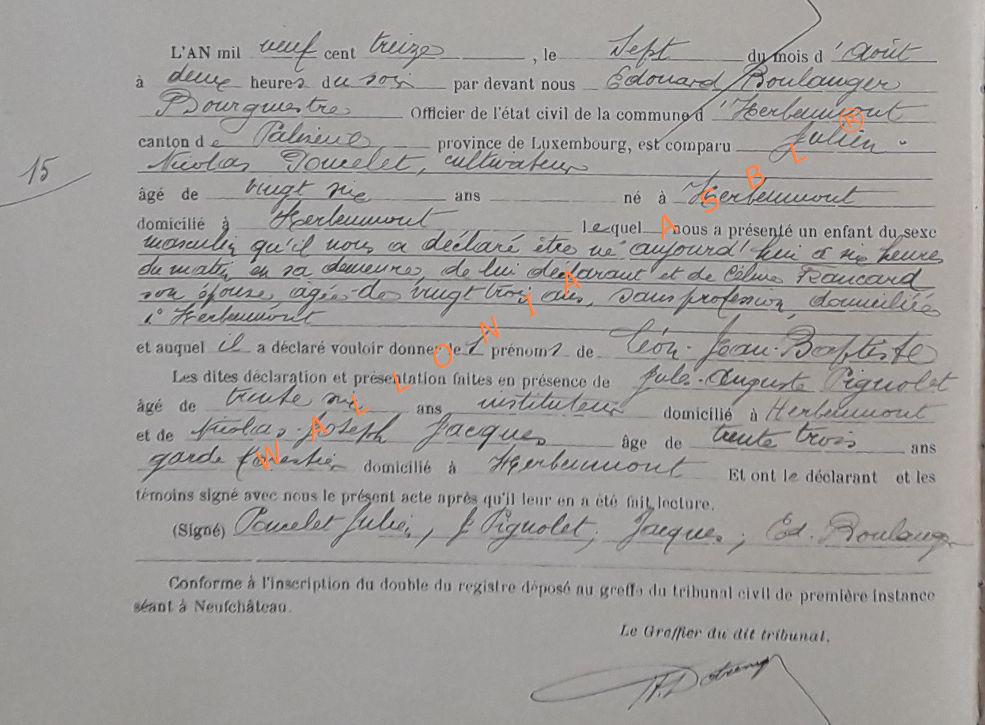 L'AN mil neuf cent treize, le Sept du mois d'Août
à deux heures du soir par devant nous Edouard Boulanger
Bourgmestre Officier de l'état civil de la commune d'Herbeumont
canton de Paliseul province de Luxembourg, est comparu Julien
15
Nicolas Poncelet, cultivateur
âgé de vingt six ans né à Herbeumont
domicilié à Herbeumont lequel nous a présenté un enfant du sexe
masculin qu'il nous a déclaré être né aujourd'hui à six heures
du matin en sa demeure, de lui déclarant et de Céline
son épouse, âgée de vingt trois ans, sans profession, domiciliés
à Herbeumont
et auquel il a déclaré vouloir donner le prénoms de Léon-Jean-Baptiste
Les dites déclaration et présentation faites en présence de Jules-Auguste Pignolet
âgé de trente six ans instituteur domicilié à Herbeumont
et de Nicolas-Joseph Jacques âge de trente trois ans
garde forestier domicilié à Herbeumont Et ont le déclarant et les
témoins signé avec nous le présent acte après qu'il leur en a été fait lecture.
(Signé) Poncelet Julien, J Pignolet, Jacques, Ed. Boulanger
Conforme à l'inscription du double du registre déposé au greffe du tribunal civil de première instance
séant à Neufchâteau.
Le Greffier du dit tribunal.
WALLONIA ASBL ®